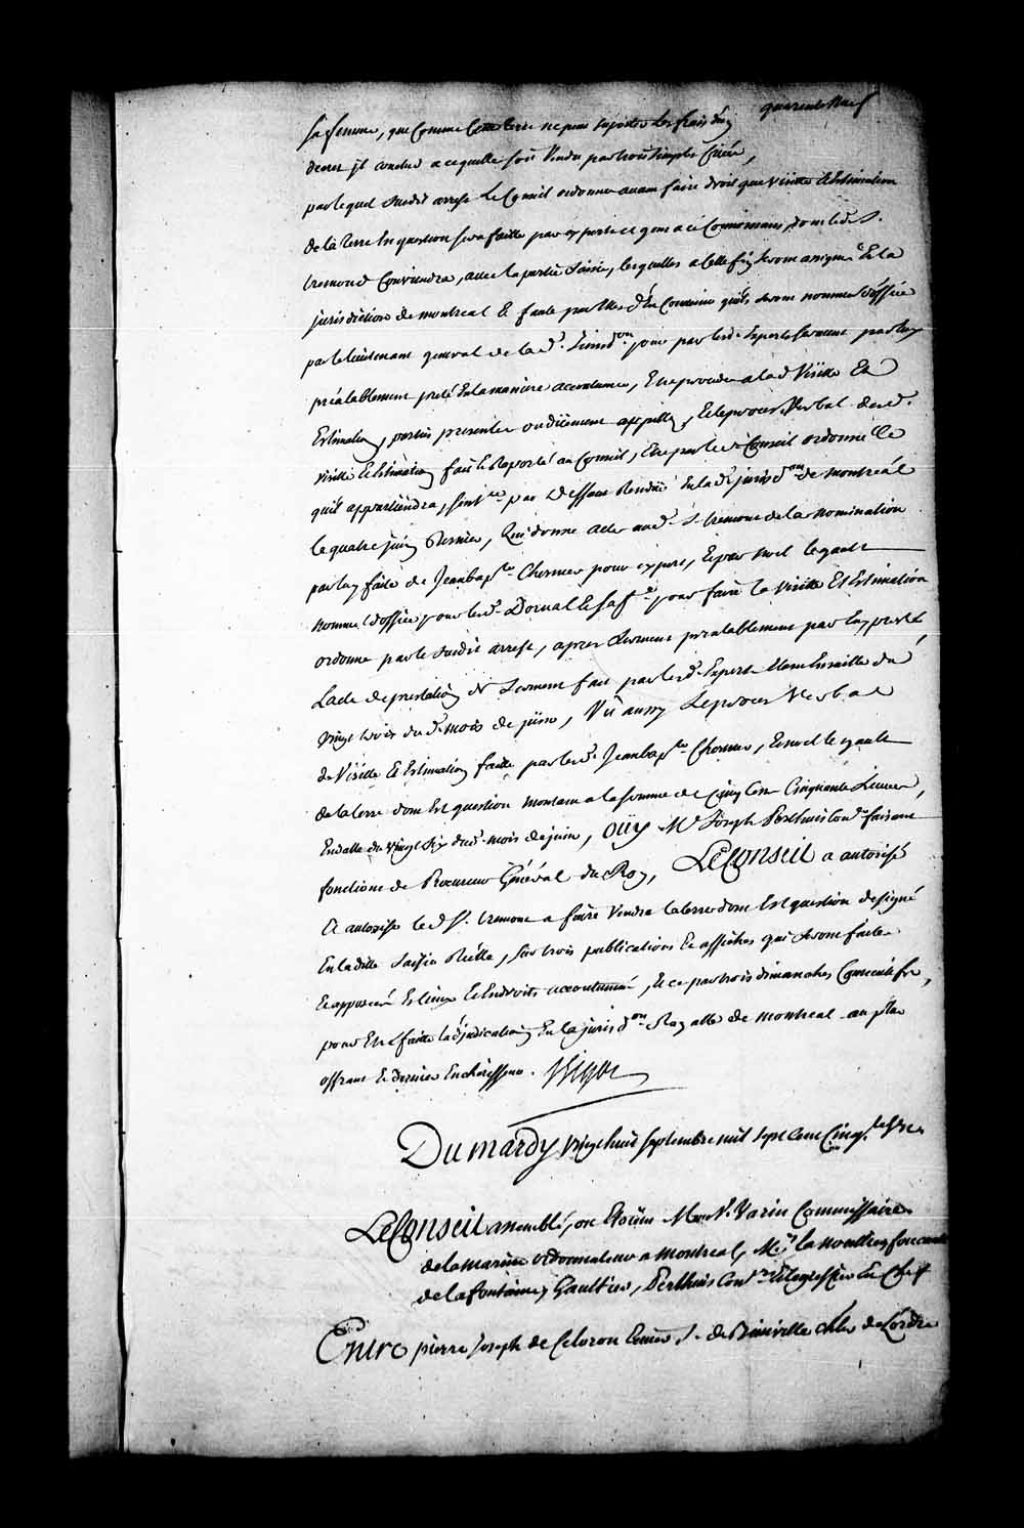 quarente Neuf
sa femme, que Comme Cette terre ne peut suporter Les frais d'un
decret il conclud a ce quelle soit Vendu par trois simples Criées,
par lequel susdit arrest Le Conseil ordonne avant faire droit que Visitte & Estimation
de la Terre En question sera faitte par experts et gens a ce Connoissans, dont led. S.
tremond Conviendra, avec la partie Saisie, lesquelles a cette fin seront assigné En la
jurisdiction de montreal & faute par Elles d'En Convenir quils seront nommés d'office
par le lieutenant general de lad. Jurisd.on pour par lesd. Experts serment par Eux
préalablement preté En la maniere accoutumée, Etre procedé a lad Visitte Et
Estimation, parties presentes ou düement appellés, & le procés Verbal de lad.
visitte & Estimation fait & Raporté au Conseil, Etre par led. Conseil ordonné Ce
quil appartiendra, sent.ce par deffaut Rendüe En lad. jurisd.on de montreal
le quatre juin dernier, Qui donne acte aud. S. tremond de la nomination
par luy faite de Jean bap.te Chormer pour expert, & par noel legault
nommé d'office pour led. Dornal & sa f.e pour faire La Visitte Et Estimation
ordonné par le susdit arrest, apres serment prealablement par Eux presté,
Lacte de prestation de serment fait par lesd. Experts Etant Ensuitte du
vingt trois du d. mois de juin, Vû aussy Le procés Verbal
de Visitte & Estimation faitte par led. Jean bap.te Chormer, & noel legault
de la terre dont Est question montant a la somme de Cinq Cent Cinquante Livres,
En datte du Vingt Six dud. mois de juin, Oüy Me Joseph Perthuis Con.er faisant
fonctions de Procureur Général du Roy, Le Conseil a autorisé
Et autorise le d. S. tremont a faire Vendre la terre dont Est question designé
En ladite Saisie Réelle, sur trois publications & affiches qui seront faites
& apposées Es lieux & Endroits accoutumés, & ce par trois dimanches Consecutifs,
pour Etre faitte l'adjudication En la juris d.on Royalle de montreal au plus
offrant & dernier Encherisseur. Bigot
Du mardy vingt huit septembre mil sept cent Cinq.te
Le Conseil assemblé, ou Etoient Mr Varin Commissaire
de la marine ordonnateur a montreal, Mrs. la nouillier foucault
de la fontaine, Gaultier, Perthuis Con.ers & le greffier En Chef
Entre pierre Joseph de Celoron Ecuier S. de Bienville de L'ordre